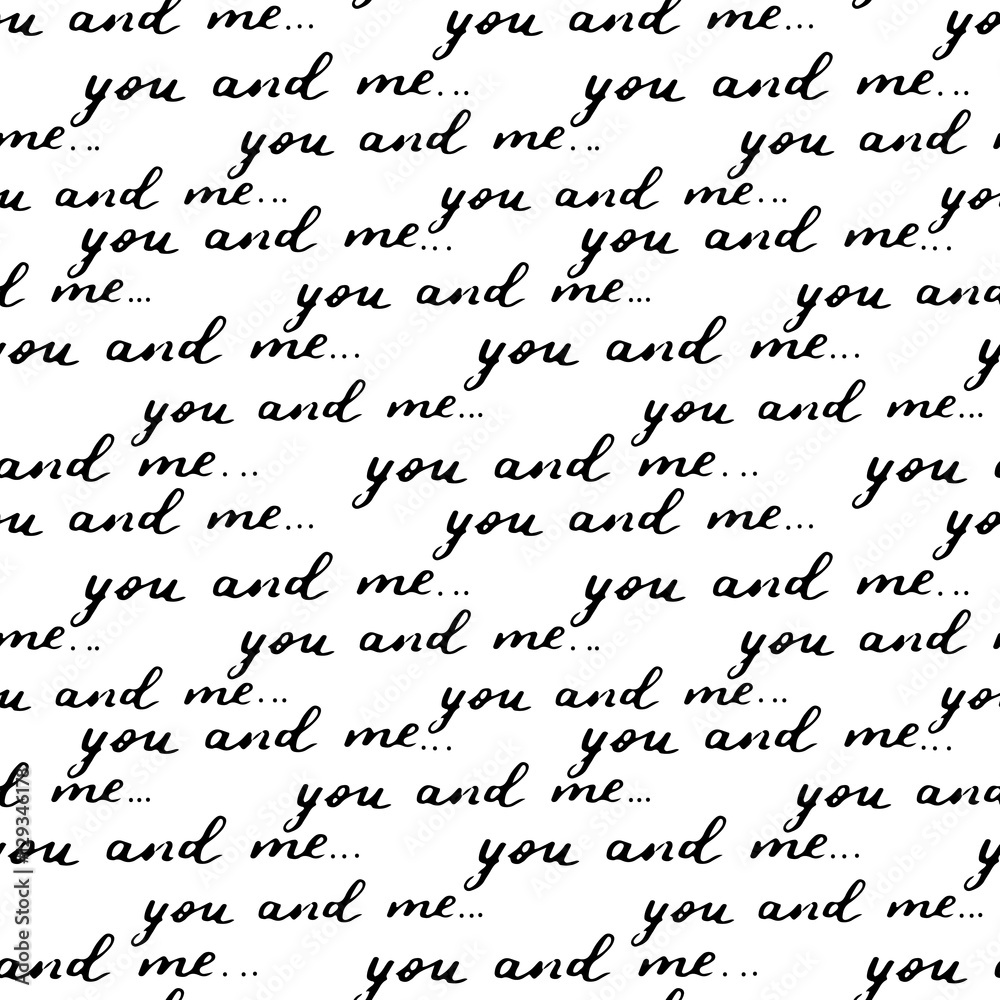 ou and me... you and me... yo
you and me... you and me...
me... you and me... you and
u and me... you and me... you
you and me... you and me...
d me... you and me... you and
you and me... you and me... y
you and me... you and me...
and me... you and me... you
ou and me... you and me... yo
you and me... you and me...
me... you and me... you and
u and me... you and me... you
you and me... you and me...
d me... you and me... you and
you and me... you and me... y
you and me... you and me...
and me... you and me... you
Adobe Stock | #629346178